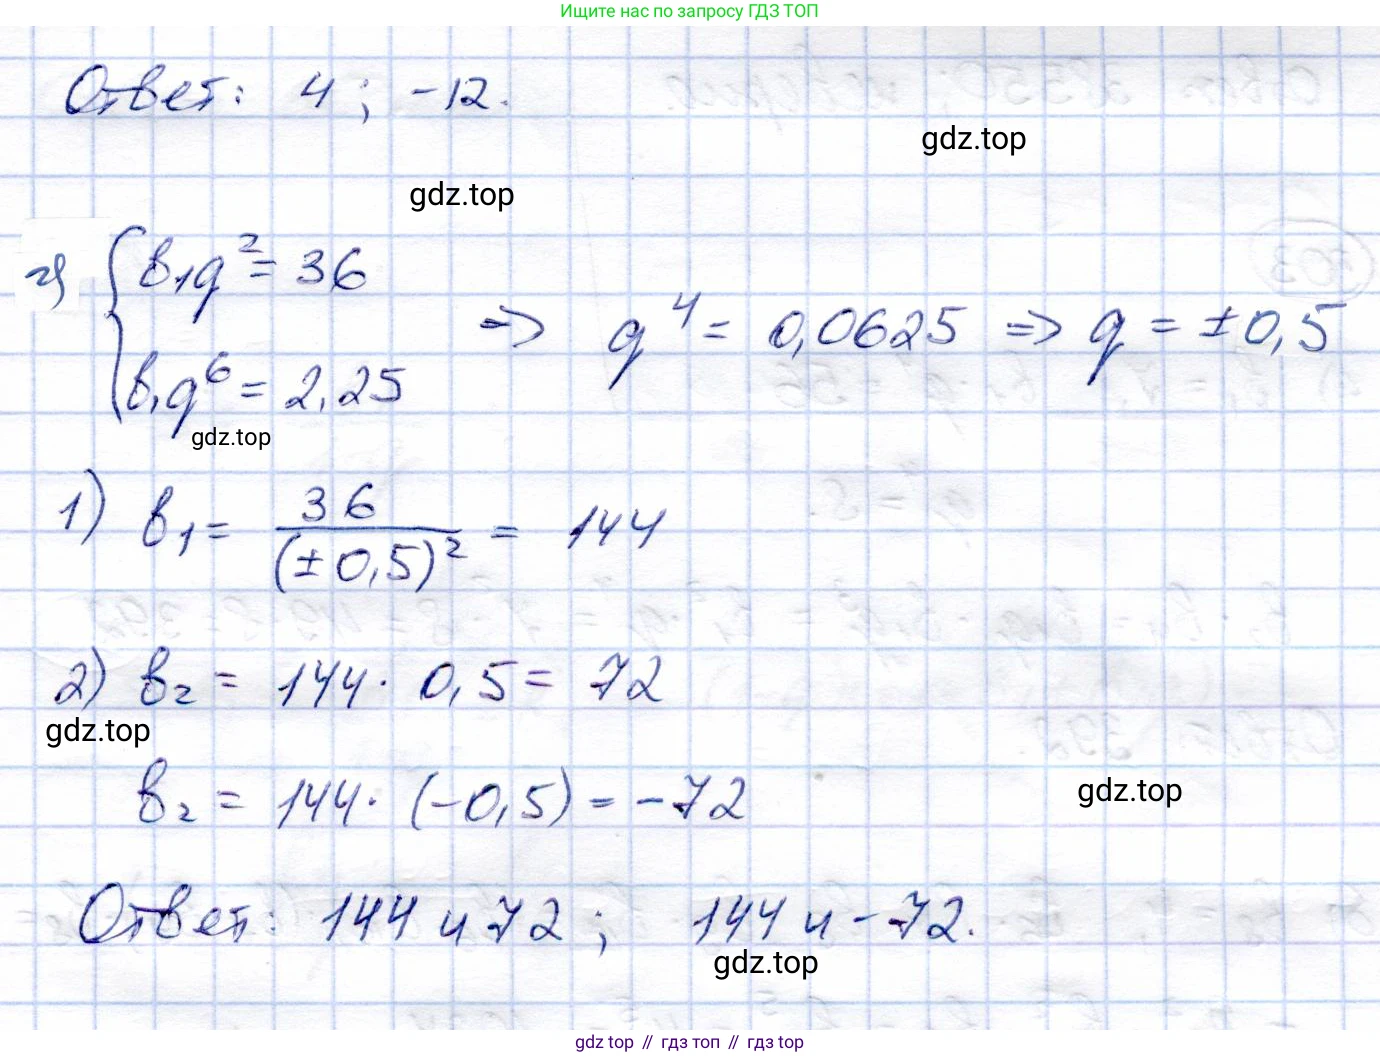 Ищите нас по запросу ГДЗ ТОП
Ответ: 4; -12.
gdz.top
gdz.top
г) { b₁q² = 36
b₁q⁶ = 2,25
=> q⁴ = 0,0625 => q = ±0,5
gdz.top
1) b₁ = 36 / (±0,5)² = 144
2) b₂ = 144 · 0,5 = 72
gdz.top
b₂ = 144 · (-0,5) = -72
gdz.top
Ответ: 144 и 72; 144 и -72.
gdz.top
gdz.top // гдз топ // гдз top